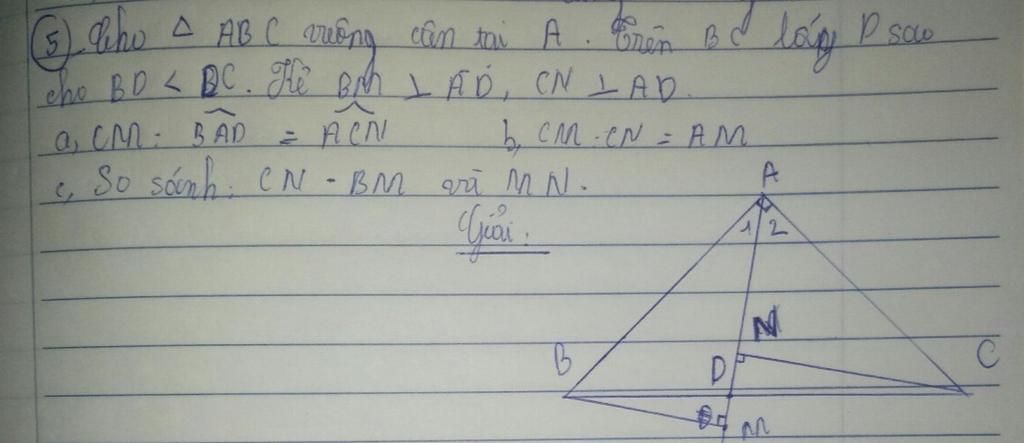 5) Cho Δ ABC vuông cân tại A. Trên BC lấy D sao
cho BD < DC. Kẻ BM ⊥ AD, CN ⊥ AD.
a, CM: BAD = ACN b, CM: CN = AM
c, So sánh: CN - BM và MN.
Giải:
A
1 2
N
B D C
M